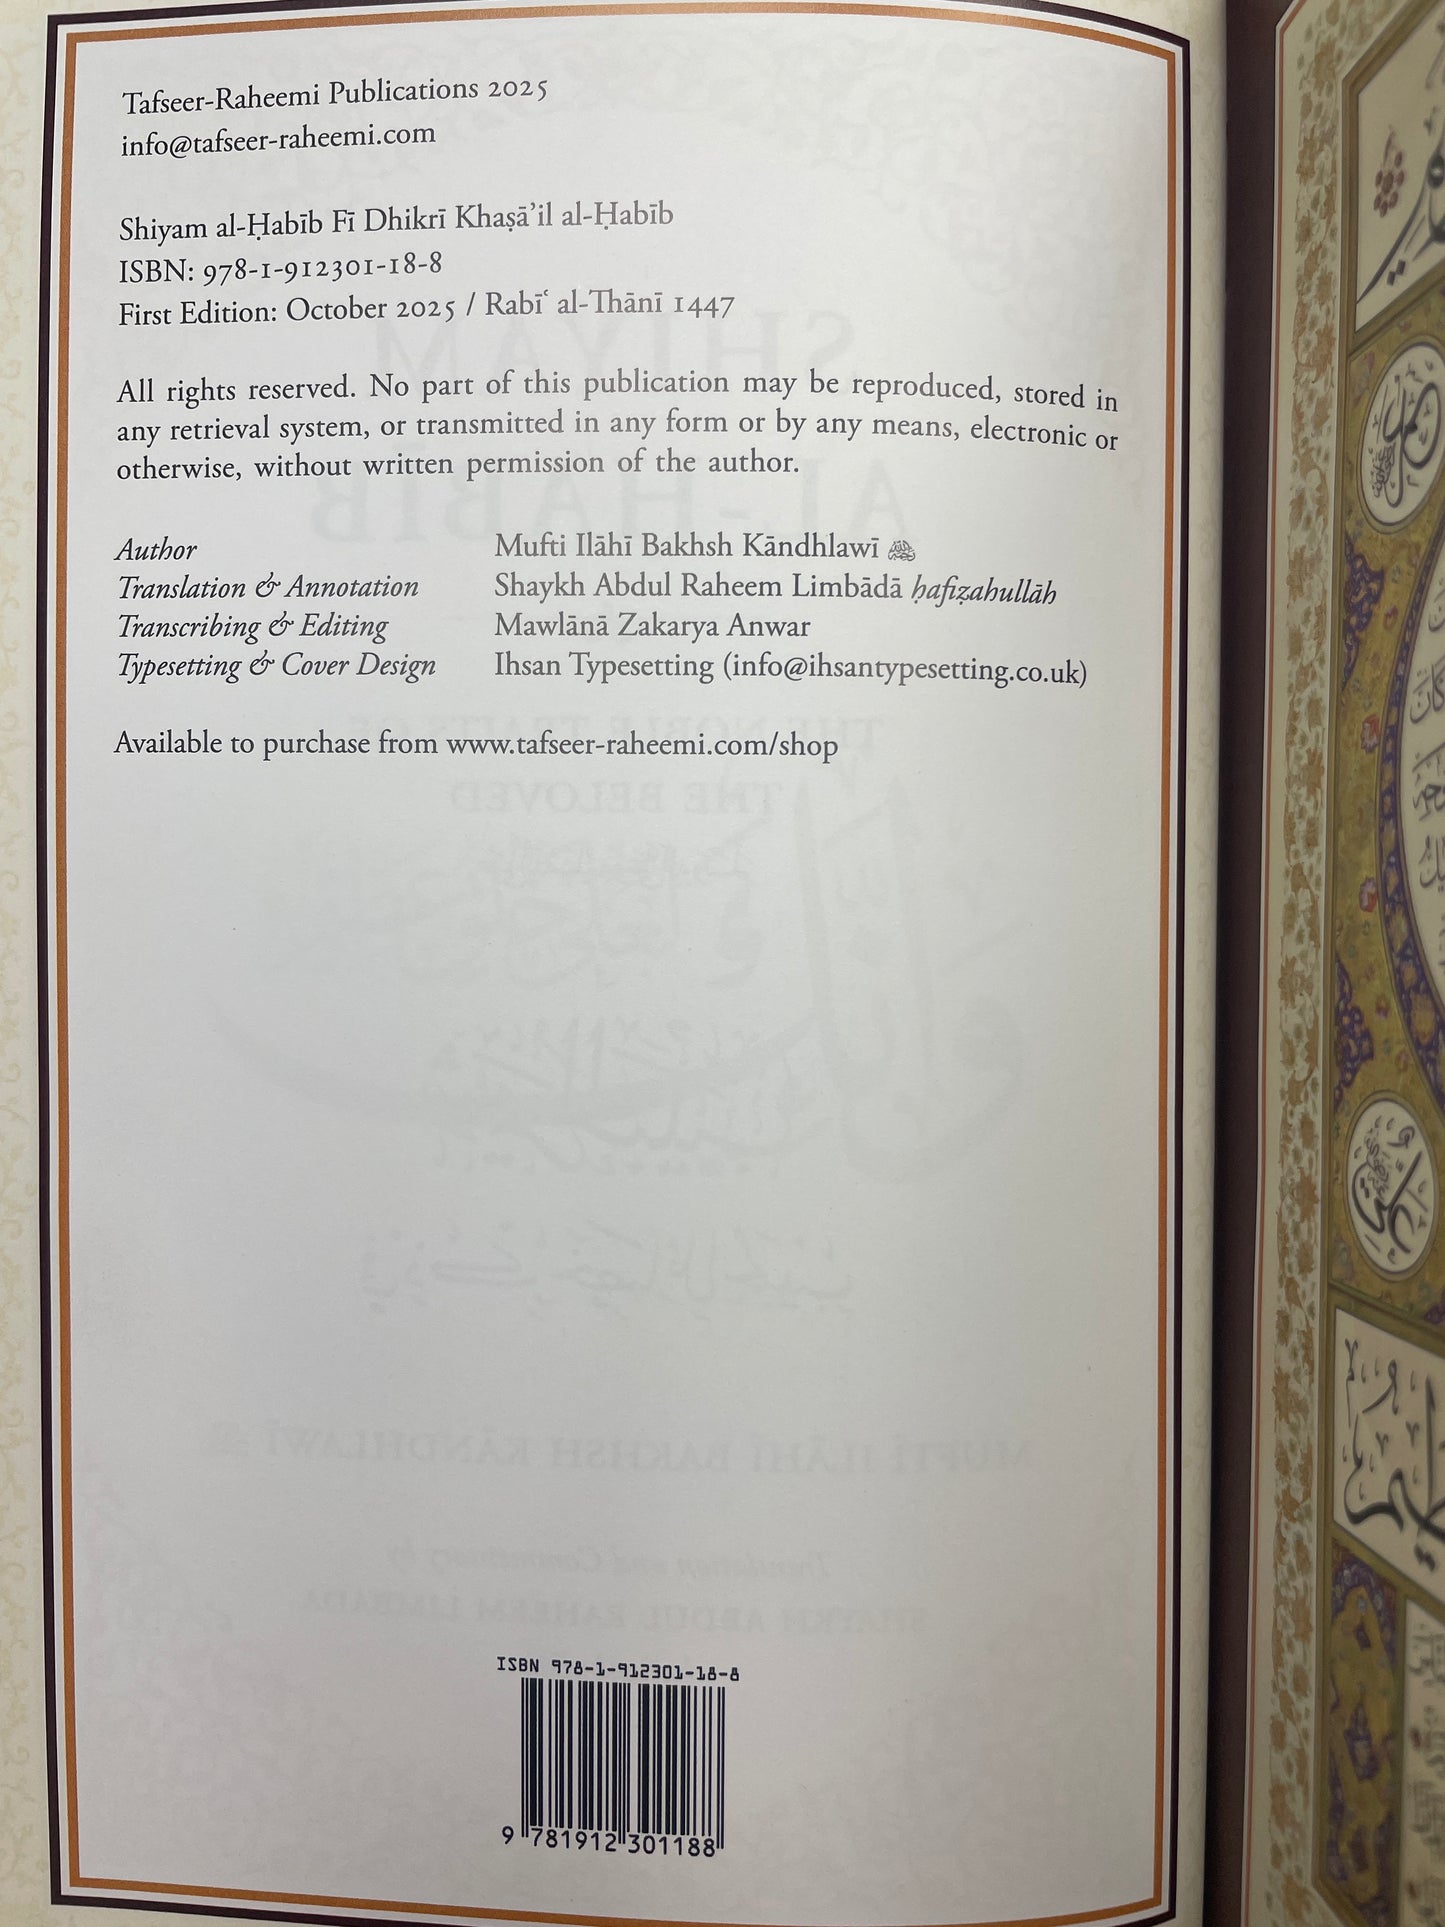 Tafseer-Raheemi Publications 2025
info@tafseer-raheemi.com
Shiyam al-Ḥabīb Fī Dhikrī Khaṣā’il al-Ḥabīb
ISBN: 978-1-912301-18-8
First Edition: October 2025 / Rabīʿ al-Thānī 1447
All rights reserved. No part of this publication may be reproduced, stored in
any retrieval system, or transmitted in any form or by any means, electronic or
otherwise, without written permission of the author.
Author Mufti Ilāhī Bakhsh Kāndhlawī
Translation & Annotation Shaykh Abdul Raheem Limbādā ḥafiẓahullāh
Transcribing & Editing Mawlānā Zakarya Anwar
Typesetting & Cover Design Ihsan Typesetting (info@ihsantypesetting.co.uk)
Available to purchase from www.tafseer-raheemi.com/shop
ISBN 978-1-912301-18-8
9 781912 301188